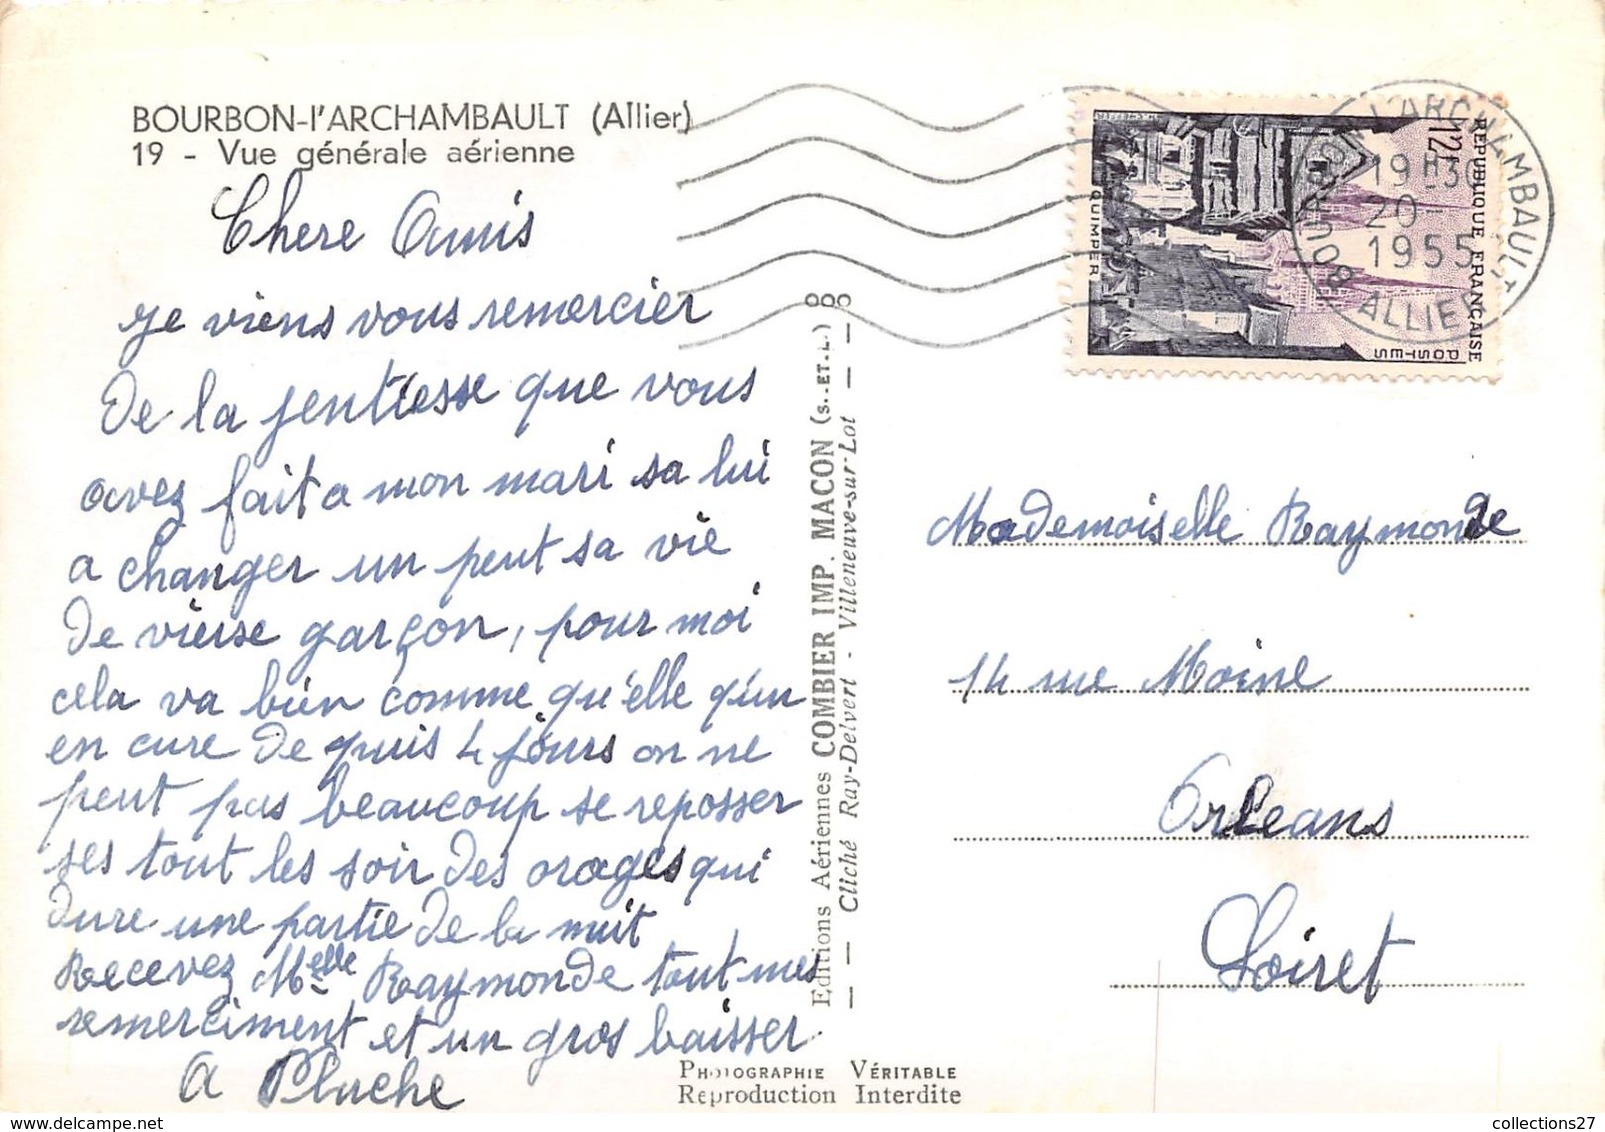 BOURBON-l'ARCHAMBAULT (Allier)
19 - Vue générale aérienne
Chere Amis
je viens vous remercier
de la jentiesse que vous
avez fait a mon mari sa lui
a changer un peut sa vie
de vieise garçon, pour moi
cela va bien comme qu'elle qu'un
en cure de puis 4 jours on ne
peut pas beaucoup se reposser
ses tout les soir des orages qui
dure une partie de la nuit
Recevez Melle Raymonde tout mes
remerciment et un gros baisser
A Pluche
Editions Aériennes COMBIER IMP. MACON (S.-ET-L.)
— — Cliché Ray-Delvert - Villeneuve-sur-Lot — —
PHOTOGRAPHIE VÉRITABLE
Reproduction Interdite
RÉPUBLIQUE FRANÇAISE
12F
POSTES
QUIMPER
BOURBON L'ARCHAMBAULT
19H30
20-
1955
ALLIER
Mademoiselle Raymonde
14 rue Moine
Orleans
Loiret
collections27